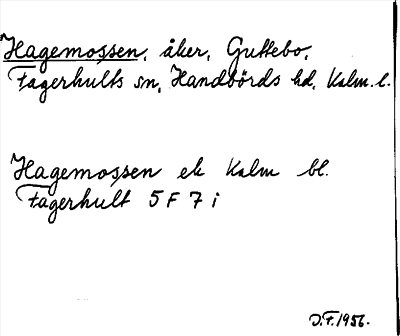 Hagemossen, åker, Guttebo,
Fagerhults sn, Handbörds hd, Kalm. l.
Hagemossen ek Kalm bl.
Fagerhult 5 F 7 i
J.F. 1956.